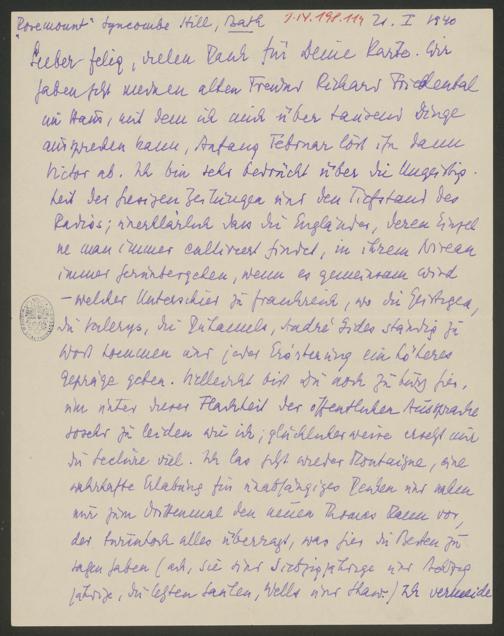 "Rosemount" Lyncombe Hill, Bath 21. I 1940
Lieber Felix, vielen Dank für Deine Karte. Wir
haben jetzt meinen alten Freund Richard Friedental
im Haus, mit dem ich mich über tausend Dinge
aussprechen kann, Anfang Februar löst ihn dann
Victor ab. Ich bin sehr bedrückt über die Ungeistig-
keit der hiesigen Zeitungen und den Tiefstand des
Radios; unerklärlich dass die Engländer, deren Einzel-
ne man immer cultiviert findet, in ihrem Niveau
immer heruntergehen, wenn es gemeinsam wird
– welcher Unterschied zu Frankreich, wo die Geistigen,
die Valerys, die Duhamels, André Gides ständig zu
Wort kommen und jeder Erörterung ein höheres
Gepräge geben. Vielleicht bist Du noch zu kurz hier,
um unter dieser Flachheit der öffentlichen Aussprache
so sehr zu leiden wie ich; glücklicherweise ersetzt mir
die Lectüre viel. Ich las jetzt wieder Montaigne, eine
wahrhafte Erlabung für unabhängiges Denken und nahm
mir zum drittenmal den neuen Thomas Mann vor,
der turmhoch alles überragt, was hier die Besten zu
sagen haben (ach, sie sind Siebzigjährige und Achtzig
jährige, die letzten Säulen, Wells und Shaw.) Ich vermeide